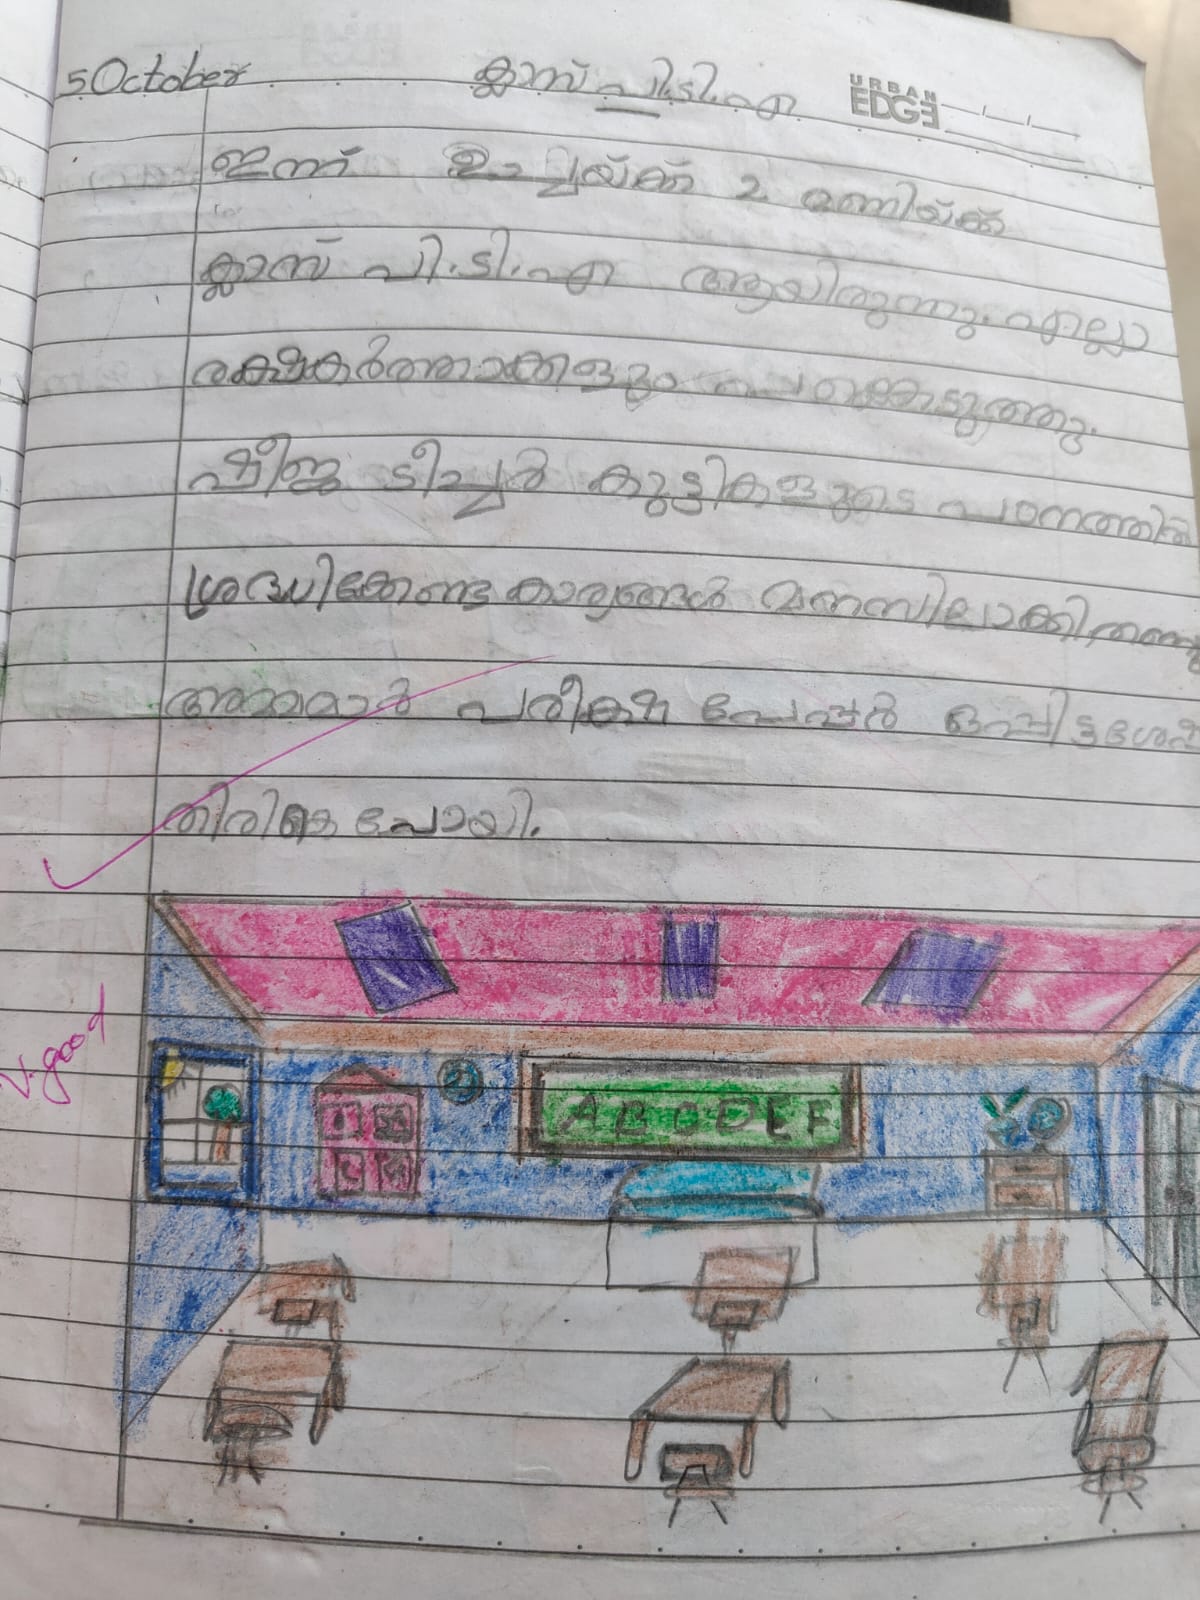 5 October ക്ലാസ് പി.ടി.എ URBAN EDGE
ഇന്ന് ഉച്ചയ്ക്ക് 2 മണിയ്ക്ക്
ക്ലാസ് പി.ടി.എ ആയിരുന്നു. എല്ലാ
രക്ഷകർത്താക്കളും പങ്കെടുത്തു.
ഷീജ ടീച്ചർ കുട്ടികളുടെ പഠനത്തിൽ
ശ്രദ്ധിക്കേണ്ട കാര്യങ്ങൾ മനസിലാക്കി തന്നു
അമ്മമാർ പരീക്ഷ പേപ്പർ ഒപ്പിട്ടശേഷം
തിരികെ പോയി.
V.good
A B C D E F